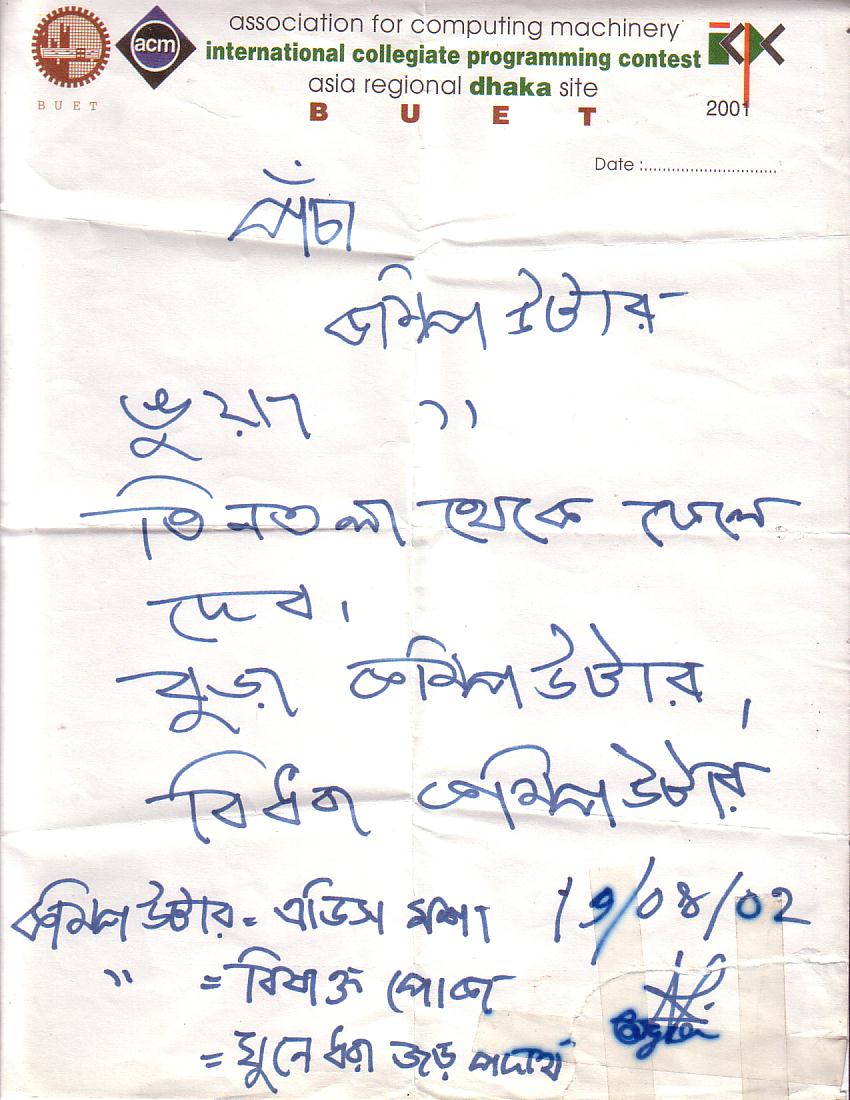 association for computing machinery
acm
international collegiate programming contest
asia regional dhaka site
BUET
B U E T
2001
Date :..................................
পঁচা
কমপিউটার
ভুয়া "
তিনতলা থেকে ফেলে
দেব।
বুড়া কমপিউটার।
বিধবা কমপিউটার
কমপিউটার = এডিস মশা 19/08/02
" = বিষাক্ত পোকা
= ঘুনে ধরা জড় পদার্থ